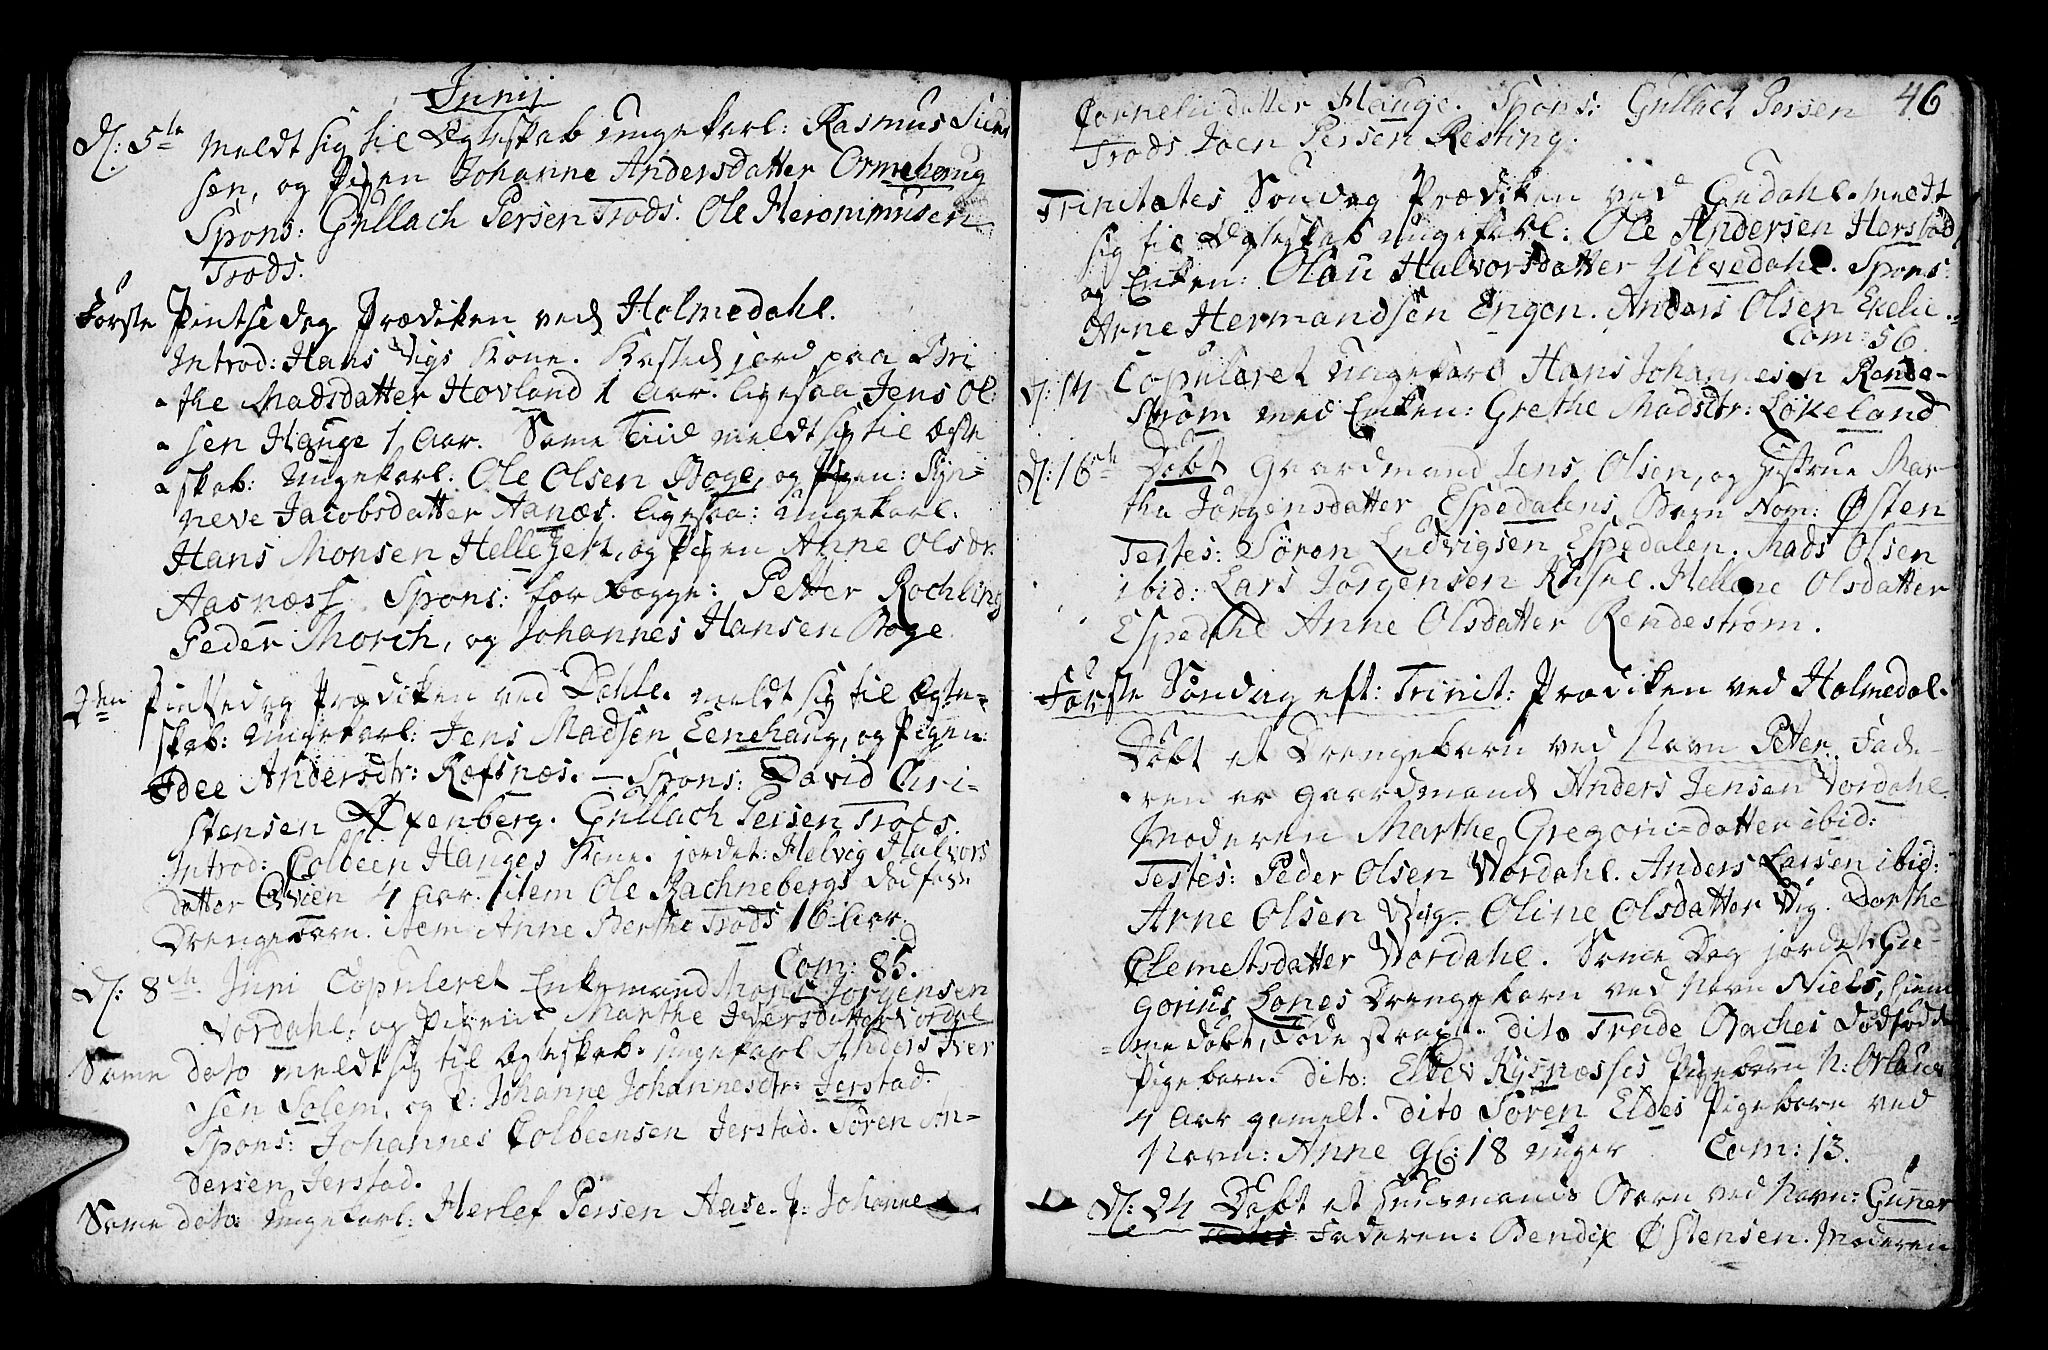 Junij
D: 5te Meldt sig til Ægteskab ungekarl: Rasmus
sen, og Pigen Johanne Andersdatter Ormehoug
Spons: Gullach Persen Trods. Ole Heronimusen
Trods.
Første Pintsedag Prædiken ved Holmedahl.
Introd: Hans Vigs Kone. Kasted jord paa Bri
the Madsdatter Hovland 1 Aar. ligesaa Jens Ol:
sen Hauge 1 Aar. Same Tiid meldt sig til Ægte
skab: Ungekarl: Ole Olsen Boge, og Pigen: Syn=
neve Jacobsdatter Aanæs. ligesaa: Ungekarl.
Hans Monsen Hellejert, og Pigen Anne Olsdr:
Aasnæss. Spons: for begge: Petter Rochling
Peder Morch, og Johannes Hansen Boge.
2den Pintsedag Prædiken ved Dahle. meldt sig til Ægte=
skab: Ungekarl: Jens Madsen Eenehaug, og Pigen:
Idee Andersdtr: Refsnæs. — Spons: David Chri=
stensen Oxenberg. Gullach Persen Trods.
Introd: Colbeen Hauges Kone. jordet: Helvig Halvors
datter Qvien 4 Aar. item Ole Rachnebergs dødfødt
Drengebarn. item Anne Berthe Trods 16 Aar.
Com: 85.
D: 8de Juni Copuleret Enkemand Mons Jørgensen
Vordahl. og Pigen: Marthe Iversdatter Vordal
Same dato meldt sig til Ægteskab. Ungekarl Anders Iver
sen Salem, og P: Johanne Johannesdtr: Jerstad.
Spons: Johannes Colbeensen Jerstad. Søren An=
dersen Jerstad.
Same dato: Ungekarl: Herlef Persen Aase. P: Johanne
46
Cornelii datter Hauge. Spons: Gullach Persen
Trods Joen Persen Resting.
Trinitates Søndag Prædiken ved Endahl. meldt
sig til Ægteskab ungekarl: Ole Andersen Herstad
og Enken: Olau Halvorsdatter Ulvedahl. Spons:
Arne Hermandsen Engen. Anders Olsen Eelie.
Com: 56.
D: 14 Copuleret Ungekarl Hans Johannesen Rende-
strøm med Enken: Grethe Madsdtr: Løkeland
D: 16de Døbt Gaardmand Jens Olsen, og Hustrue Mar
tha Jørgensdatter Espedalens Barn Nom: Østen
Testes: Søren Ludvigsen Espedalen. Mads Olsen
ibid: Lars Jørgensen Hellene Olsdatter
Espedahl Anne Olsdatter Rendestrøm.
Første Søndag eft: Trinit: Prædiken ved Holmedal.
Døbt et Drengebarn ved Navn Petter. Fade-
ren er Gaardmand Anders Jensen Vordahl.
Moderen Marthe Gregorii=datter ibid:
Testes: Peder Olsen Vordahl. Anders Larsen ibid:
Arne Olsen Vig. Oline Olsdatter Vig. Dorthe
Clemetsdatter Vordahl. Same Dag jordet: Gre-
gorius Lones Drengebarn ved Navn Niels, hiem-
me døbt, døde strax. dito Trude Baches dødfødde
Pigebarn. dito: Eldev Rysnæsses Pigebarn N: Orlaus
4 Aar gamelt. dito Søren Eldes Pigebarn ved
Navn: Anne Gl: 18 uger Com: 13.
D: 24 Døbt et Huusmands Barn ved Navn: Gunner
Faderen: Bendix Østensen. Moderen